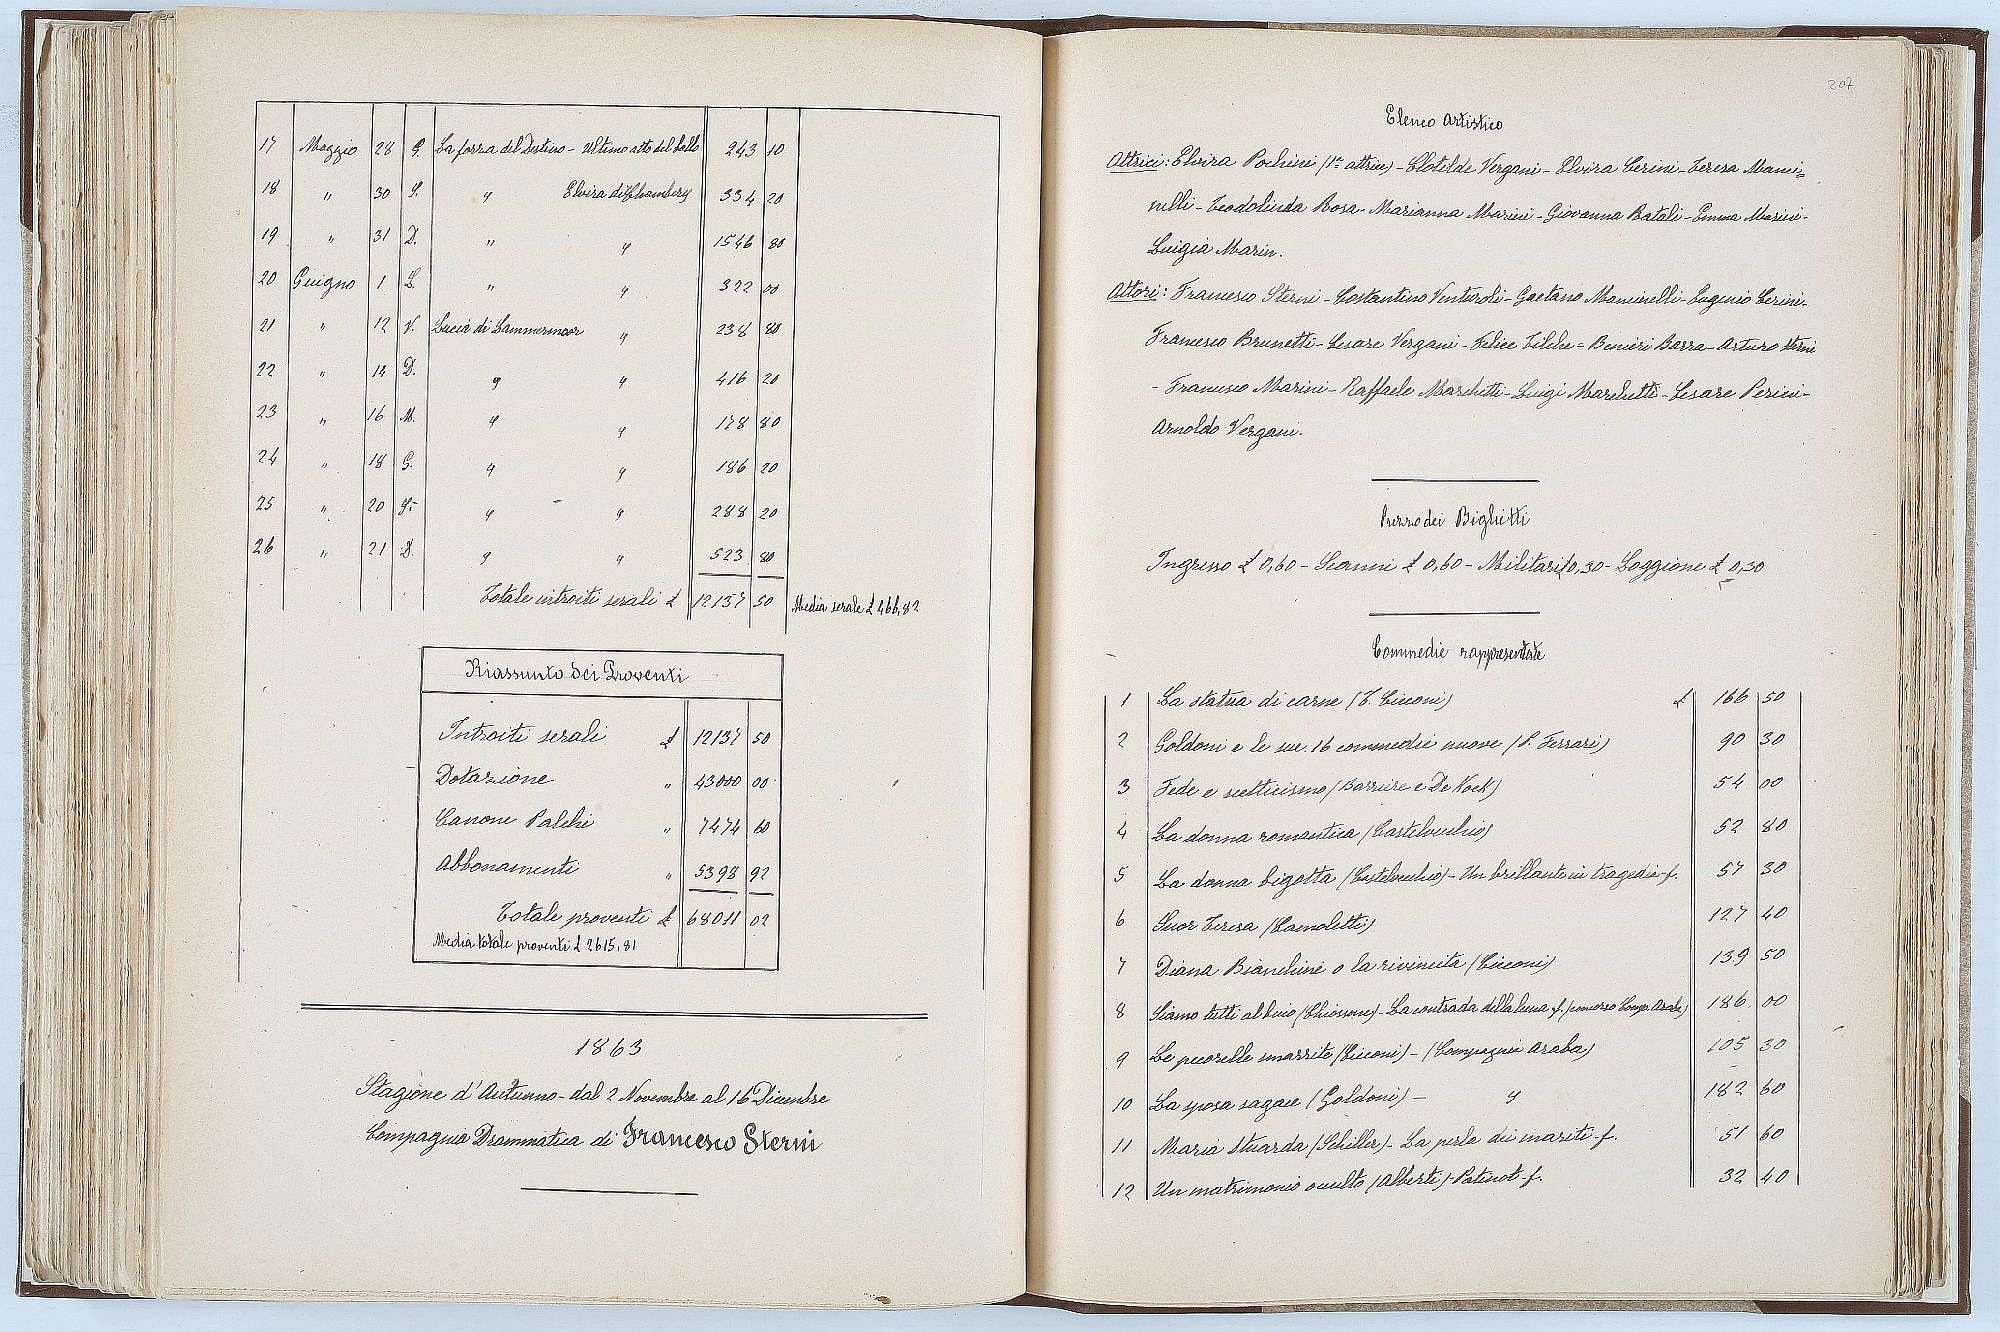 17 Maggio 28 G. La forza del Destino - Ultimo atto del ballo 243 10
18 " 30 S. " Elvira di Chambery 334 20
19 " 31 D. " " 1546 80
20 Guigno 1 L. " " 322 00
21 " 12 V. Lucia di Lammermoor " 238 80
22 " 14 D. " " 416 20
23 " 16 M. " " 178 80
24 " 18 G. " " 186 20
25 " 20 S. " " 288 20
26 " 21 D. " " 523 80
Totale introiti serali £ 12137 50 Media serale £ 466,82
Riassunto dei Proventi
Introiti serali £ 12137 50
Dotazione " 43000 00
Canone Palchi " 7474 60
Abbonamenti " 5398 92
Totale proventi £ 68011 02
Media totale proventi £ 2615,81
1863
Stagione d'Autunno - dal 2 Novembre al 16 Dicembre
Compagnia Drammatica di Francesco Sterni
207
Elenco Artistico
Attrici: Elvira Pochini (1ª attrice) - Clotilde Vergani - Elvira Cerini - Teresa Manci=
nelli - Teodolinda Rosa - Marianna Marini - Giovanna Batali - Emma Marini -
Luigia Marin.
Attori: Francesco Sterni - Costantino Venturoli - Gaetano Mancinelli - Eugenio Cerini -
Francesco Brunetti - Cesare Vergani - Felice Tilche = Benieri Barra - Arturo Sterni
- Francesco Marini - Raffaele Marchetti - Luigi Marchetti - Cesare Perini -
Arnoldo Vergani.
Prezzo dei Biglietti
Ingresso £ 0,60 - Scanni £ 0,60 - Militari £ 0,30 - Loggione £ 0,30
Commedie rappresentate
1 La statua di carne (T. Ciconi) £ 166 50
2 Goldoni e le sue 16 commedie nuove (P. Ferrari) 90 30
3 Fede e scetticismo (Barriere e De Kock) 54 00
4 La donna romantica (Castelvecchio) 52 80
5 La donna bigotta (Castelvecchio) - Un brillante in tragedia - f. 57 30
6 Suor Teresa (Camoletti) 127 40
7 Diana Bianchini o la rivincita (Ciconi) 139 50
8 Siamo tutti al buio (Chiossone) - La contrada della luna f. (concorso Comp. Araba) 186 00
9 Le pecorelle smarrite (Ciconi) - (Compagnia Araba) 105 30
10 La sposa sagace (Goldoni) - " 182 60
11 Maria Stuarda (Schiller) - La perla dei mariti - f. 51 60
12 Un matrimonio occulto (Alberti) - Patinot - f. 32 40